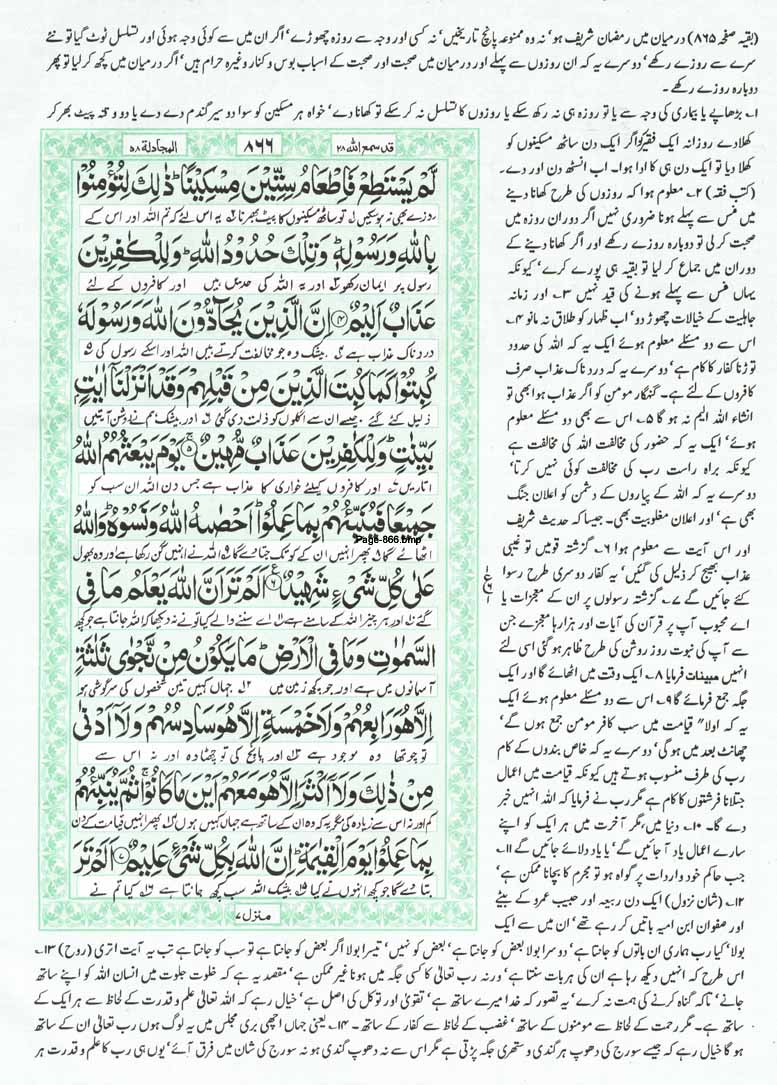 (بقیہ صفحہ ۸۶۵) درمیان میں رمضان شریف ہو' نہ وہ ممنوعہ پانچ تاریخیں' نہ کسی اور وجہ سے روزہ چھوڑے' اگر ان میں سے کوئی وجہ ہوئی اور تسلسل ٹوٹ گیا تو نئے
سرے سے روزے رکھے' دوسرے یہ کہ ان روزوں سے پہلے اور درمیان میں صحبت اور صحبت کے اسباب بوس و کنار وغیرہ حرام ہیں' اگر درمیان میں کچھ کر لیا تو پھر
دوبارہ روزے رکھے۔
۱۔ بڑھاپے یا بیماری کی وجہ سے یا تو روزہ ہی نہ رکھ سکے یا روزوں کا تسلسل نہ کر سکے تو کھانا دے' خواہ ہر مسکین کو سوا دو سیر گندم دے دے یا دو وقتہ پیٹ بھر کر
کھلا دے روزانہ ایک فقیر کو اگر ایک دن ساٹھ مسکینوں کو
کھلا دیا تو ایک دن ہی کا ادا ہوا۔ اب انسٹھ دن اور دے۔
(کتب فقہ) ۲۔ معلوم ہوا کہ روزوں کی طرح کھانا دینے
میں مس سے پہلے ہونا ضروری نہیں اگر دوران روزہ میں
صحبت کر لی تو دوبارہ روزے رکھے اور اگر کھانا دینے کے
دوران میں جماع کر لیا تو بقیہ ہی پورے کرے' کیونکہ
یہاں مس سے پہلے ہونے کی قید نہیں ۳۔ اور زمانہ
جاہلیت کے خیالات چھوڑ دو' اب ظہار کو طلاق نہ مانو ۴۔
اس سے دو مسئلے معلوم ہوئے ایک یہ کہ اللہ کی حدود
توڑنا کفار کا کام ہے' دوسرے یہ کہ دردناک عذاب صرف
کافروں کے لئے ہے۔ گنہگار مومن کو اگر عذاب ہوا بھی تو
انشاء اللہ الیم نہ ہو گا ۵۔ اس سے بھی دو مسئلے معلوم
ہوئے' ایک یہ کہ حضور کی مخالفت اللہ کی مخالفت ہے
کیونکہ براہ راست رب کی مخالفت کوئی نہیں کرتا'
دوسرے یہ کہ اللہ کے پیاروں کے دشمن کو اعلان جنگ
بھی ہے' اور اعلان مغلوبیت بھی۔ جیسا کہ حدیث شریف
اور اس آیت سے معلوم ہوا ۶۔ گزشتہ قومیں تو غیبی
عذاب بھیج کر ذلیل کی گئیں' یہ کفار دوسری طرح رسوا
کئے جائیں گے ۷۔ گزشتہ رسولوں پر ان کے معجزات یا
اے محبوب آپ پر قرآن کی آیات اور ہزارہا معجزے جن
سے آپ کی نبوت روز روشن کی طرح ظاہر ہو گئی اسی لئے
انہیں مبینات فرمایا ۸۔ ایک وقت میں اٹھائے گا اور ایک
جگہ جمع فرمائے گا ۹۔ اس سے دو مسئلے معلوم ہوئے ایک
یہ کہ اولاً" قیامت میں سب کافر مومن جمع ہوں گے'
چھانٹ بعد میں ہو گی' دوسرے یہ کہ خاص بندوں کے کام
رب کی طرف منسوب ہوتے ہیں کیونکہ قیامت میں اعمال
جتلانا فرشتوں کا کام ہے مگر رب نے فرمایا کہ اللہ انہیں خبر
دے گا۔ ۱۰۔ دنیا میں' مگر آخرت میں ہر ایک کو اپنے
سارے اعمال یاد آ جائیں گے' یا یاد دلائے جائیں گے ۱۱۔
جب حاکم خود واردات پر گواہ ہو تو مجرم کا بچانا ممکن ہے'
۱۲۔ (شان نزول) ایک دن ربیعہ اور حبیب عمرو کے بیٹے
اور صفوان ابن امیہ باتیں کر رہے تھے' ان میں سے ایک
المجادلة ۵۸
۸۶۶
قد سمع الله ۲۸
لَّمْ يَسْتَطِعْ فَاِطْعَامُ سِتِّيْنَ مِسْكِيْنًا ؕ ذٰلِكَ لِتُؤْمِنُوْا
روزے بھی نہ ہو سکیں لہ تو ساٹھ مسکینوں کا پیٹ بھرنا لہ یہ اس لئے کہ تم اللہ اور اس کے
بِاللّٰهِ وَرَسُوْلِهٖ ؕ وَتِلْكَ حُدُوْدُ اللّٰهِ ؕ وَلِلْكٰفِرِيْنَ
رسول پر ایمان رکھو تہ اور یہ اللہ کی حدیں ہیں اور کافروں کے لئے
عَذَابٌ اَلِيْمٌ ۝۴ اِنَّ الَّذِيْنَ يُحَآدُّوْنَ اللّٰهَ وَرَسُوْلَهٗ
دردناک عذاب ہے کہ بیشک وہ جو مخالفت کرتے ہیں اللہ اور اسکے رسول کی ۵
كُبِتُوْا كَمَا كُبِتَ الَّذِيْنَ مِنْ قَبْلِهِمْ وَقَدْ اَنْزَلْنَاۤ اٰيٰتٍۭ
ذلیل کئے گئے جیسے ان سے اگلوں کو ذلت دی گئی لہ اور بیشک ہم نے روشن آیتیں
بَيِّنٰتٍ ؕ وَلِلْكٰفِرِيْنَ عَذَابٌ مُّهِيْنٌ ۝۵ يَوْمَ يَبْعَثُهُمُ اللّٰهُ
اتاریں کہ اور کافروں کیلئے خواری کا عذاب ہے جس دن اللہ ان سب کو
جَمِيْعًا فَيُنَبِّئُهُمْ بِمَا عَمِلُوْا ؕ اَحْصٰىهُ اللّٰهُ وَنَسُوْهُ ؕ وَاللّٰهُ
Page-866.bmp
اٹھائے گا ۵ پھر انہیں ان کے کوتک جتائے گا ۵ اللہ نے انہیں گن رکھا ہے اور وہ بھول
عَلٰى كُلِّ شَيْءٍ شَهِيْدٌ ۝۶ اَلَمْ تَرَ اَنَّ اللّٰهَ يَعْلَمُ مَا فِى
گئے اور ہر چیز اللہ کے سامنے ہے اے سننے والے کیا تو نے نہ دیکھا کہ اللہ جانتا ہے جو کچھ
السَّمٰوٰتِ وَمَا فِى الْاَرْضِ ؕ مَا يَكُوْنُ مِنْ نَّجْوٰى ثَلٰثَةٍ
آسمانوں میں ہے اور جو کچھ زمین میں جہاں کہیں تین شخصوں کی سرگوشی ہو
اِلَّا هُوَ رَابِعُهُمْ وَلَا خَمْسَةٍ اِلَّا هُوَ سَادِسُهُمْ وَلَاۤ اَدْنٰى
تو چوتھا وہ موجود ہے اور پانچ کی تو چھٹا وہ اور نہ اس سے
مِنْ ذٰلِكَ وَلَاۤ اَكْثَرَ اِلَّا هُوَ مَعَهُمْ اَيْنَ مَا كَانُوْا ۚ ثُمَّ يُنَبِّئُهُمْ
کم اور نہ اس سے زیادہ کی مگر یہ کہ وہ ان کے ساتھ ہے جہاں کہیں ہوں پھر انہیں قیامت کے دن
بِمَا عَمِلُوْا يَوْمَ الْقِيٰمَةِ ؕ اِنَّ اللّٰهَ بِكُلِّ شَيْءٍ عَلِيْمٌ ۝۷ اَلَمْ تَرَ
بتا دے گا جو کچھ انہوں نے کیا بیشک اللہ سب کچھ جانتا ہے کیا تم نے
منزل ۷
بولا' کیا رب ہماری ان باتوں کو جانتا ہے' دوسرا بولا بعض کو جانتا ہے' بعض کو نہیں' تیسرا بولا اگر بعض کو جانتا ہے تو سب کو جانتا ہے تب یہ آیت اتری (روح) ۱۳۔
اس طرح کہ انہیں دیکھ رہا ہے ان کی ہر بات سنتا ہے' ورنہ رب تعالیٰ کا کسی جگہ میں ہونا غیر ممکن ہے' مقصد یہ ہے کہ خلوت جلوت میں انسان اللہ کو اپنے ساتھ
جانے' تاکہ گناہ کرنے کی ہمت نہ کرے' یہ تصور کہ خدا میرے ساتھ ہے' تقویٰ اور توکل کی اصل ہے' خیال رہے کہ اللہ تعالیٰ علم و قدرت کے لحاظ سے ہر ایک کے
ساتھ ہے۔ مگر رحمت کے لحاظ سے مومنوں کے ساتھ' غضب کے لحاظ سے کفار کے ساتھ۔ ۱۴۔ یعنی جہاں اچھی بری مجلس میں یہ لوگ ہوں رب تعالیٰ ان کے ساتھ
ہو گا خیال رہے کہ جیسے سورج کی دھوپ ہر گندی و ستھری جگہ پڑتی ہے مگر اس سے نہ دھوپ گندی ہو نہ سورج کی شان میں فرق آئے' یوں ہی رب کا علم و قدرت ہر